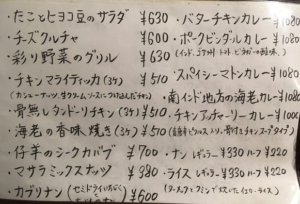 ・たことヒヨコ豆のサラダ ¥630
・チーズクルチャ ¥600
・彩り野菜のグリル ¥630
・チキンマライティッカ(3ケ) ¥510
(カシューナッツ、生クリームソースにつけ込んだチキン)
・骨無しタンドーリチキン(3ケ) ¥510
・海老の香味焼き(3ケ) ¥510
・仔羊のシークカバブ ¥700
・マサラミックスナッツ ¥380
・カプリナン(セミドライいちじく ¥600
・バターチキンカレー ¥1080
・ポークビンダルカレー ¥1080
・スパイシーマトンカレー ¥1080
・南インド地方の海老カレー ¥1080
・チキンアッチャーリーカレー ¥1000
・ナン レギュラー ¥330 ハーフ ¥220
・ライス レギュラー ¥330 ハーフ ¥220
(ターメリックとクミンで炊いたイエローライス)